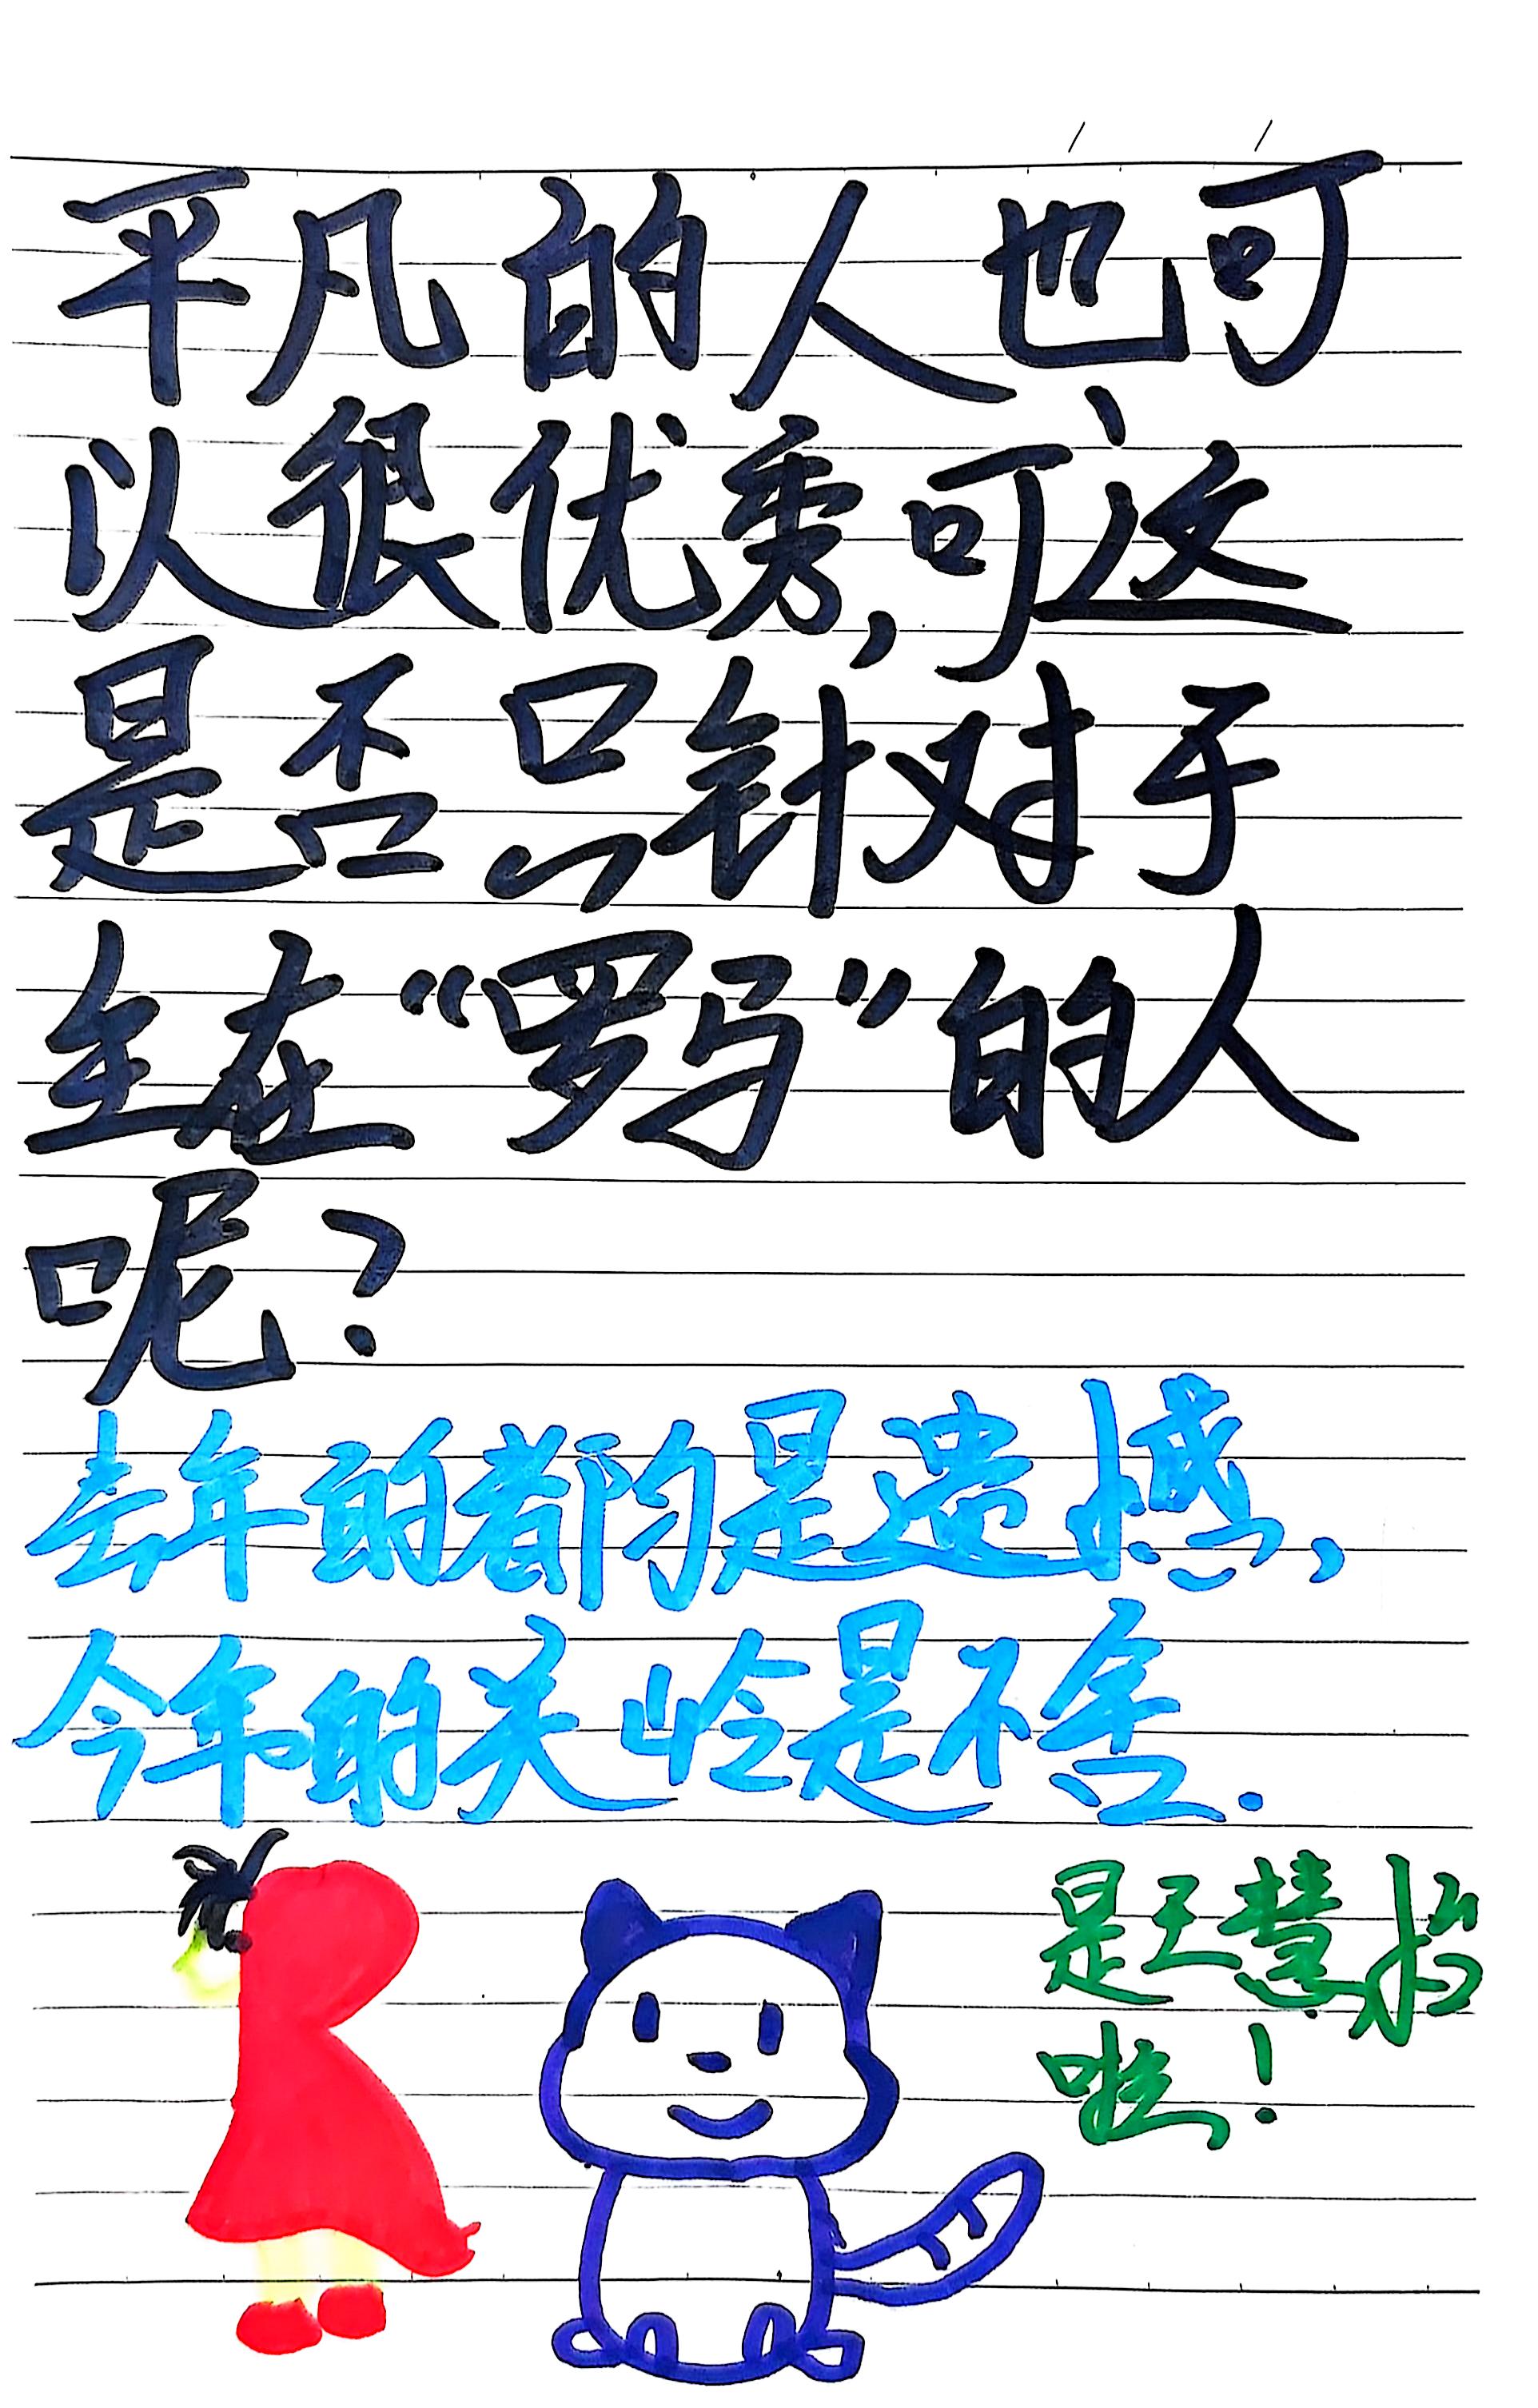 平凡的人也可
以很优秀,可这
是否只针对于
生在“罗马”的人
呢?
去年的都均是遗憾,
今年的关岭是不舍.
是王慧
啦!